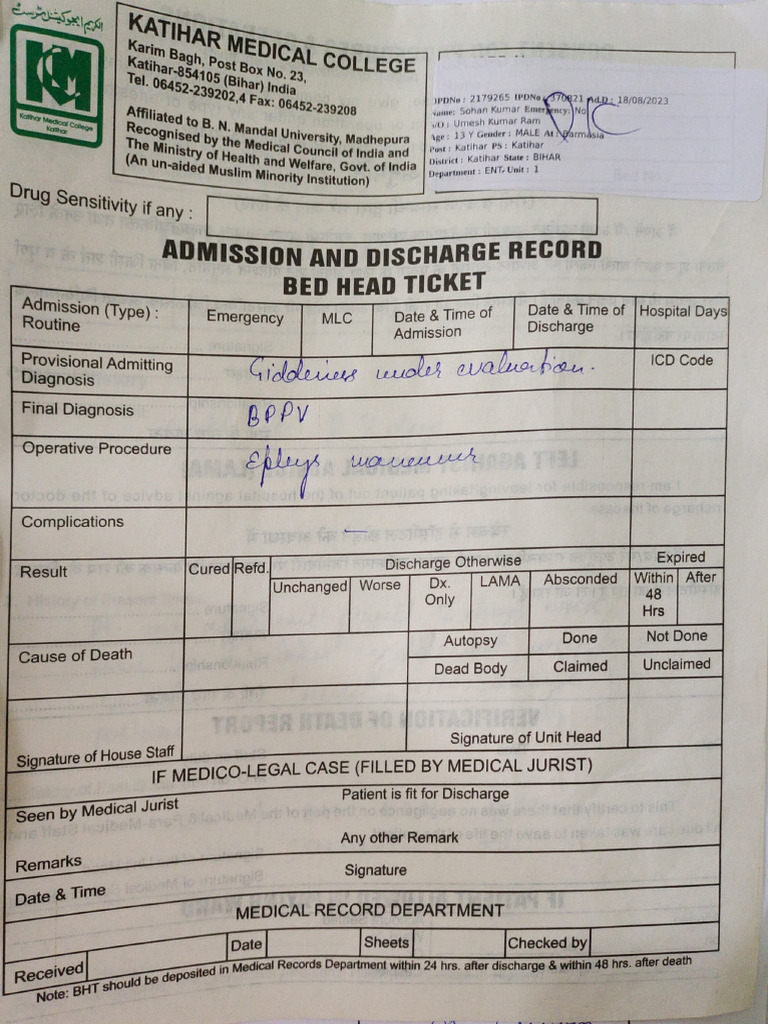 الکریم ایجوکیشنل ٹرسٹ
Katihar Medical College
Katihar
KATIHAR MEDICAL COLLEGE
Karim Bagh, Post Box No. 23,
Katihar-854105 (Bihar) India
Tel. 06452-239202,4 Fax: 06452-239208
Affiliated to B. N. Mandal University, Madhepura
Recognised by the Medical Council of India and
The Ministry of Health and Welfare, Govt. of India
(An un-aided Muslim Minority Institution)
OPDNo : 2179265 IPDNo : 370821 Ad.D : 18/08/2023
Name: Sohan Kumar Emergency: No
S/O : Umesh Kumar Ram
Age : 13 Y Gender : MALE At : Darmasia
Post : Katihar PS : Katihar
District : Katihar State : BIHAR
Department : ENT, Unit : 1
Drug Sensitivity if any :
ADMISSION AND DISCHARGE RECORD
BED HEAD TICKET
Admission (Type) :
Routine
Emergency
MLC
Date & Time of
Admission
Date & Time of
Discharge
Hospital Days
Provisional Admitting
Diagnosis
Giddiness under evaluation.
ICD Code
Final Diagnosis
BPPV
Operative Procedure
Epleys
Complications
—
Result
Cured
Refd.
Discharge Otherwise
Unchanged
Worse
Dx.
Only
LAMA
Absconded
Expired
Within
48
Hrs
After
Cause of Death
Autopsy
Done
Not Done
Dead Body
Claimed
Unclaimed
Signature of House Staff
Signature of Unit Head
IF MEDICO-LEGAL CASE (FILLED BY MEDICAL JURIST)
Seen by Medical Jurist
Patient is fit for Discharge
Remarks
Any other Remark
Date & Time
Signature
MEDICAL RECORD DEPARTMENT
Received
Date
Sheets
Checked by
Note: BHT should be deposited in Medical Records Department within 24 hrs. after discharge & within 48 hrs. after death